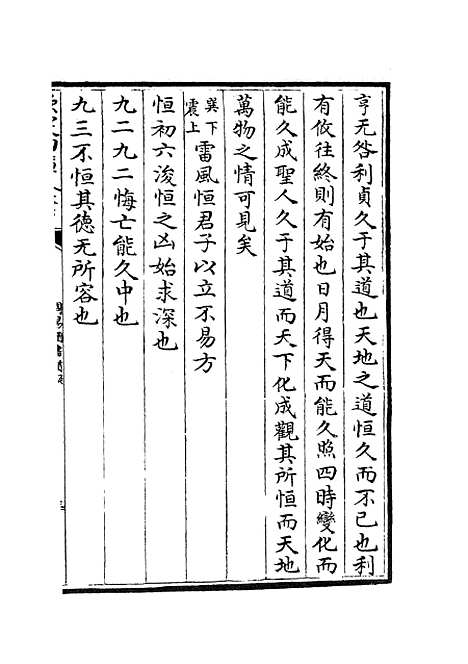 亨无咎利貞久于其道也天地之道恒久而不已也利
有攸往終則有始也日月得天而能久照四時變化而
能久成聖人久于其道而天下化成觀其所恒而天地
萬物之情可見矣
巽下
震上
雷風恒君子以立不易方
恒初六浚恒之凶始求深也
九二九二悔亡能久中也
九三不恒其德无所容也